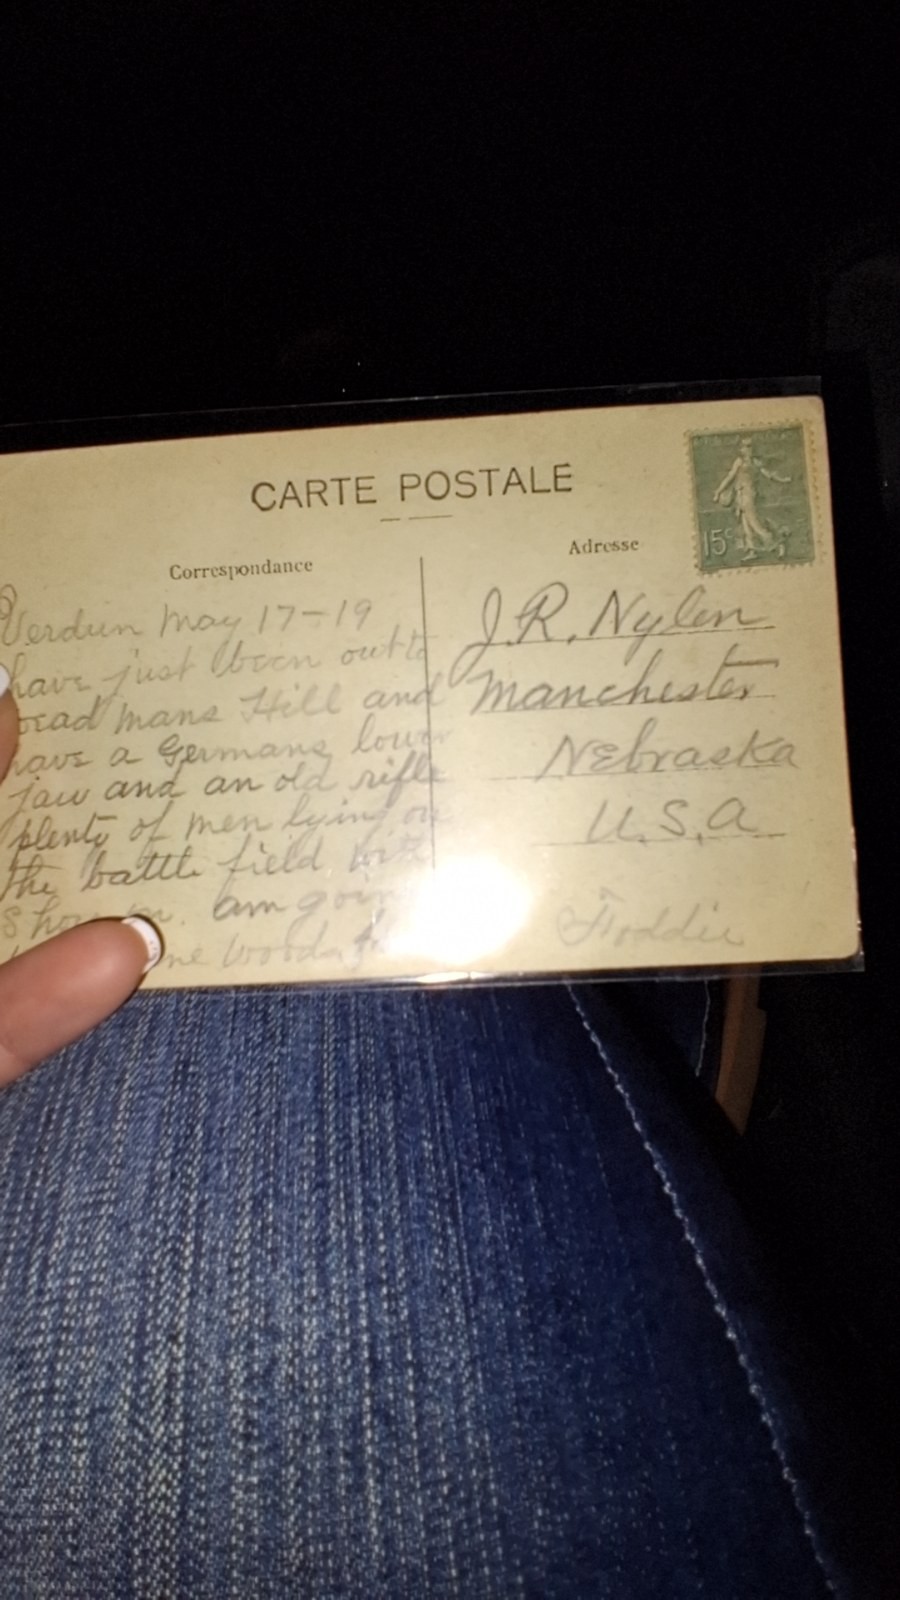 CARTE POSTALE
Correspondance
Adresse
15c
Verdun May 17-19
have just been out to
Dead Mans Hill and
have a Germans lower
jaw and an old rifle
plenty of men lying on
the battle field with
am going
woods
J.R. Nylen
Manchester
Nebraska
U.S.A